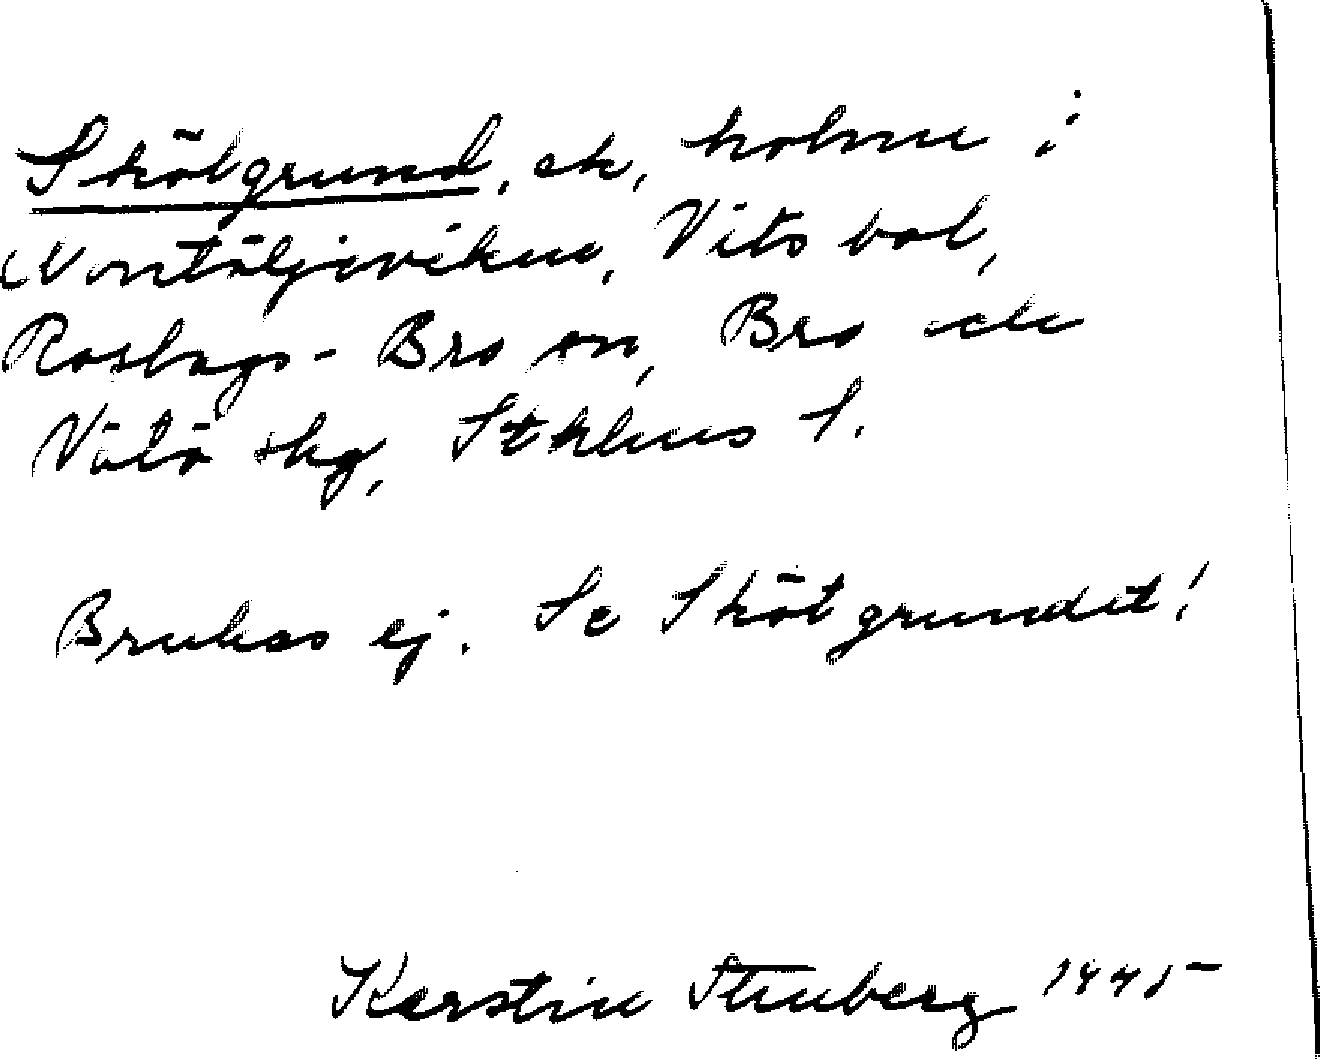 Skötgrund, ek, holme i
Norrtäljeviken, Vitsbol,
Roslags-Bro sn, Bro och
Vätö skg, Sthlms l.
Brukas ej. Se Skötgrundet!
Kerstin Stenberg 1945